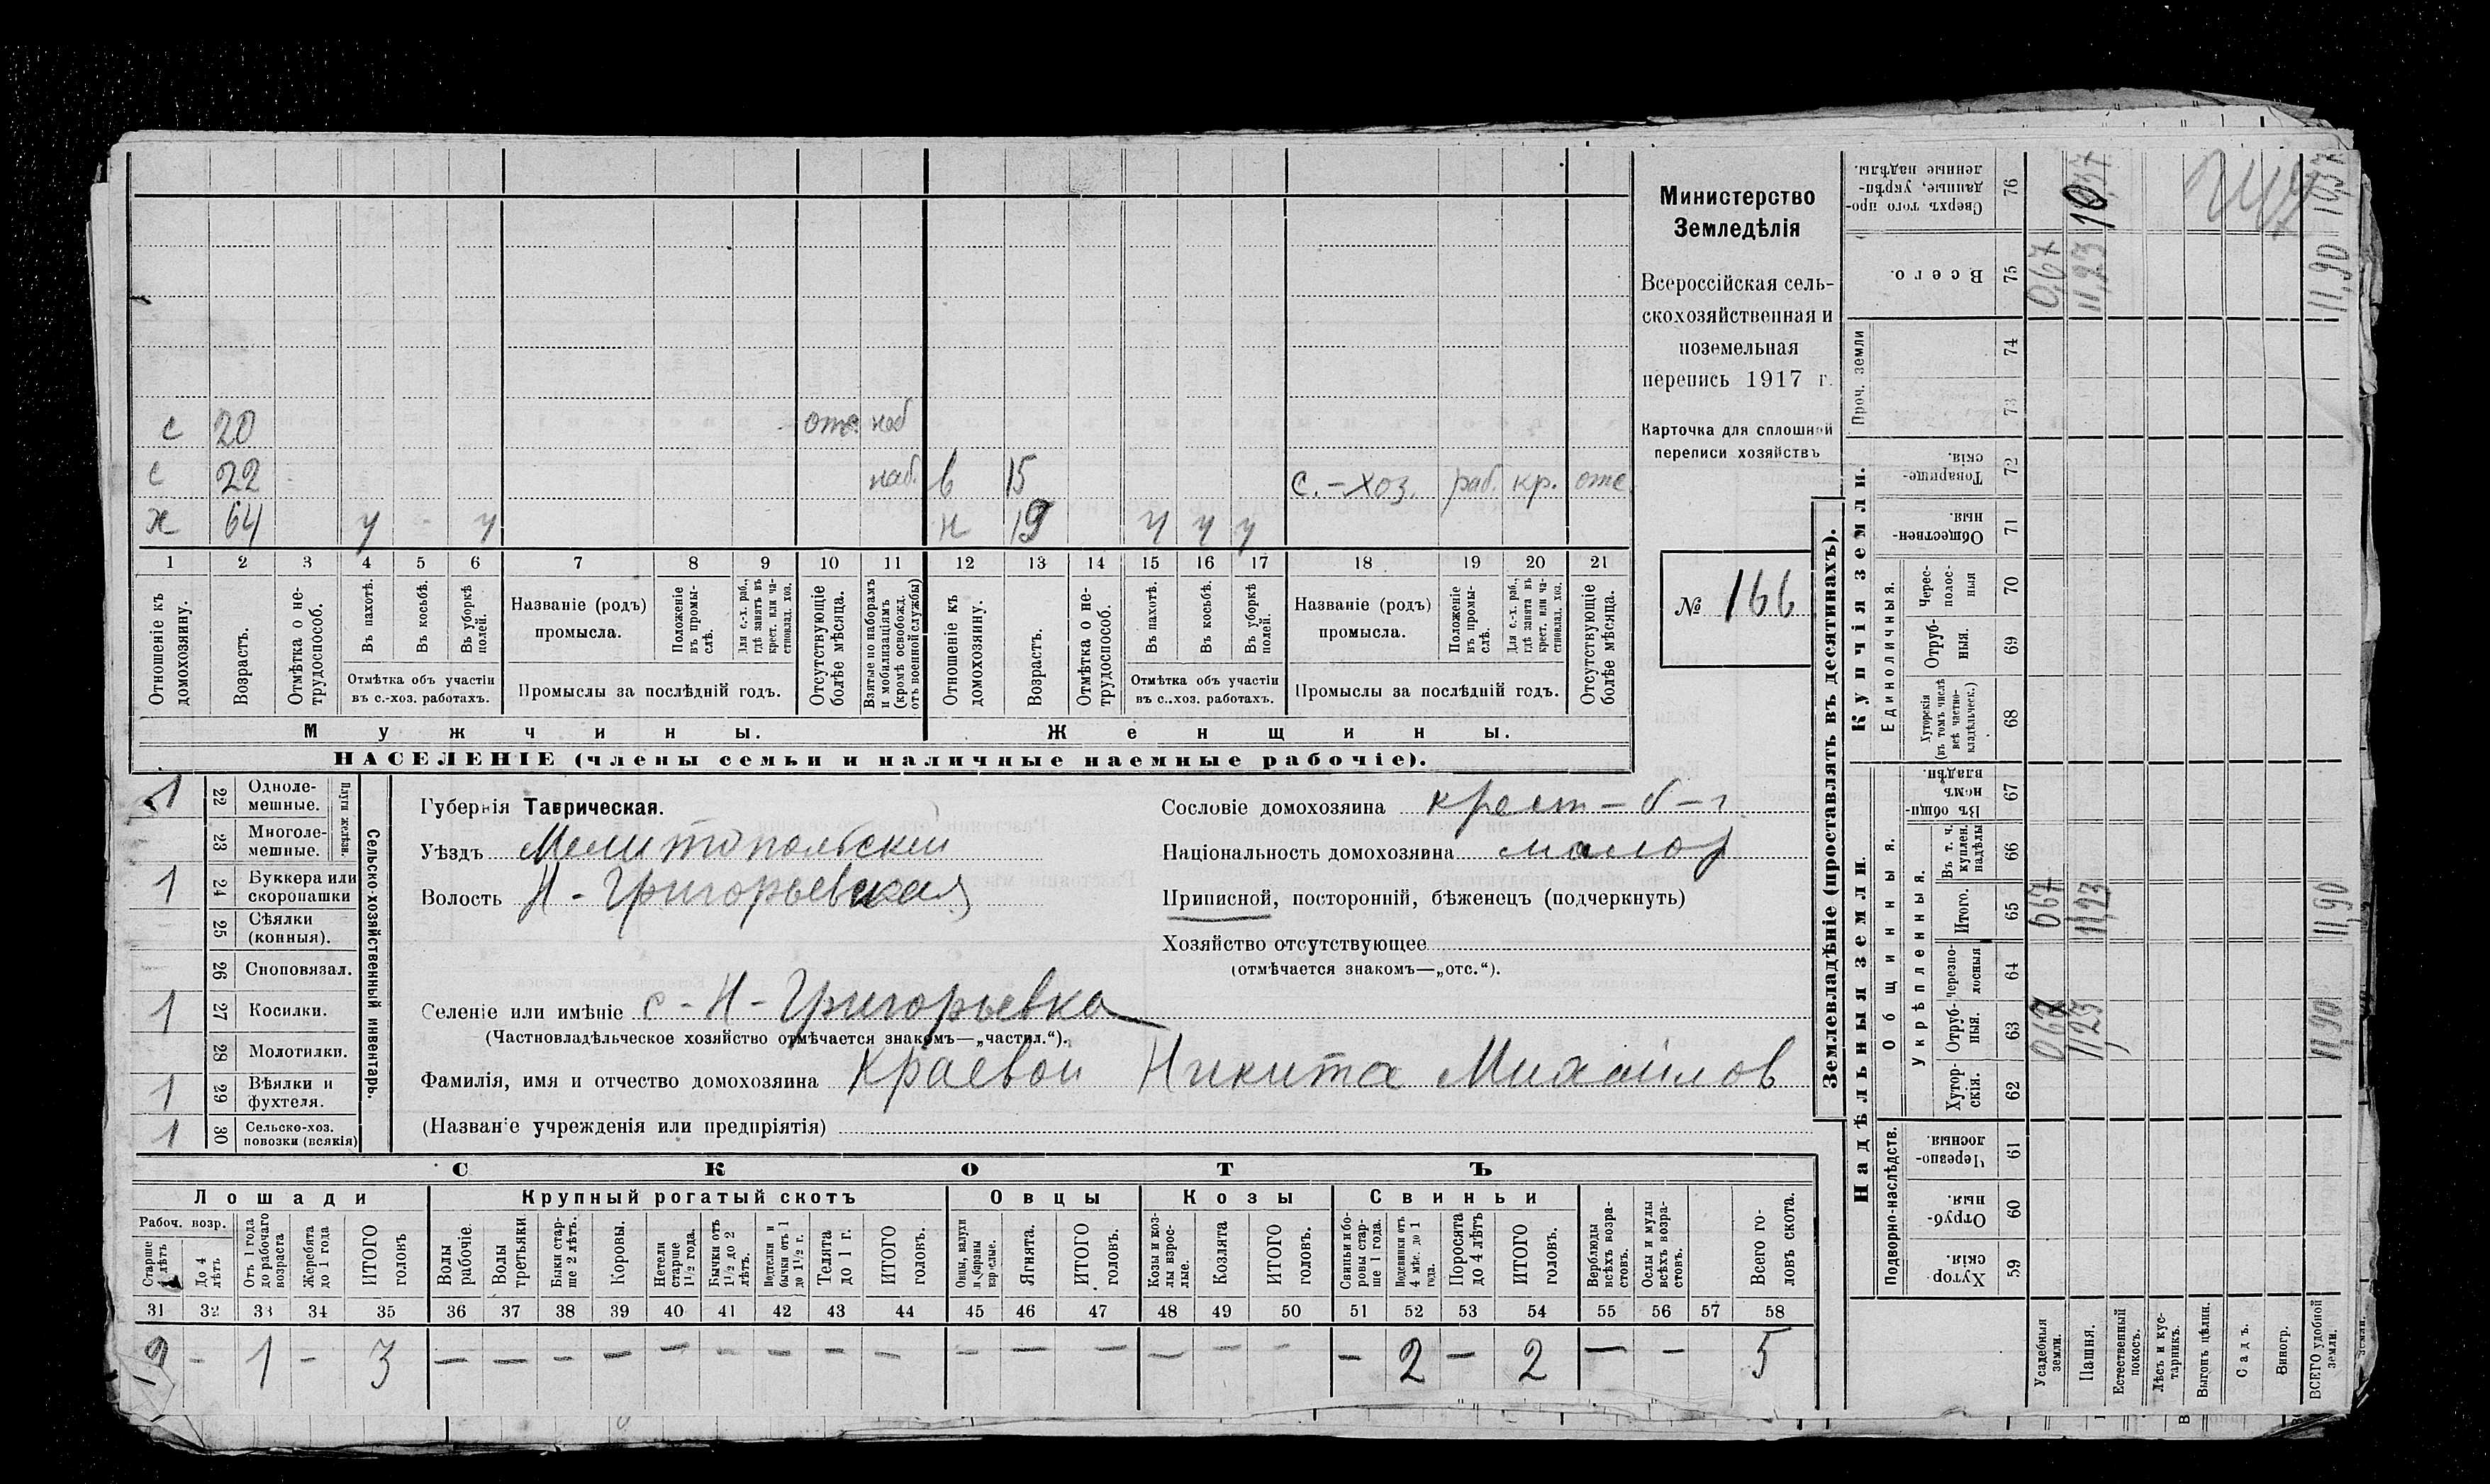 с 20 отс. наб
с 22 наб. в 15 с.-хоз. раб. кр. отс.
х 64 у - у н 19 у у у
1 2 3 4 5 6 7 8 9 10 11 12 13 14 15 16 17 18 19 20 21
Отношеніе къ домохозяину.
Возрастъ.
Отмѣтка о не-
трудоспособ.
Въ пахотѣ.
Въ косьбѣ.
Въ уборкѣ полей.
Отмѣтка объ участіи
въ с.-хоз. работахъ.
Названіе (родъ)
промысла.
Положеніе въ промы-
слѣ.
Для с.-х. раб., гдѣ занятъ въ крест. или ча-
стновлад. хоз.
Промыслы за послѣдній годъ.
Отсутствующіе
болѣе мѣсяца.
Взятые по наборамъ
и мобилизаціямъ
(кромѣ освобожд.
отъ военной службы)
Отношеніе къ
домохозяину.
Возрастъ.
Отмѣтка о не-
трудоспособ.
Въ пахотѣ.
Въ косьбѣ.
Въ уборкѣ
полей.
Отмѣтка объ участіи
въ с..хоз. работахъ.
Названіе (родъ)
промысла.
Положеніе
въ промы-
слѣ.
Для с.-х. раб.,
гдѣ занята въ
крест. или ча-
стновлад. хоз.
Промыслы за послѣдній годъ.
Отсутствующіе
болѣе мѣсяца.
Мужчины.
Женщины.
НАСЕЛЕНІЕ (члены семьи и наличные наемные рабочіе).
Министерство
Земледѣлія
Всероссійская сель-
скохозяйственная и
поземельная
перепись 1917 г.
Карточка для сплошной
переписи хозяйствъ
№ 166
1 22 Одноле-
мешные.
23 Многоле-
мешные.
Плуги желѣзн.
1 24 Буккера или
скоропашки
25 Сѣялки
(конныя).
26 Сноповязал.
1 27 Косилки.
28 Молотилки.
1 29 Вѣялки и
фухтеля.
1 30 Сельско-хоз.
повозки (всякія)
Сельско-хозяйственный инвентарь.
Губернія Таврическая.
Уѣздъ Мелитопольский
Волость Н-Григорьевская
Селеніе или имѣніе с-Н-Григорьевка
(Частновладѣльческое хозяйство отмѣчается знакомъ—„частвл.“).
Фамилія, имя и отчество домохозяина Краевой Никита Михайлов
(Названіе учрежденія или предпріятія)
Сословіе домохозяина крест-
Національность домохозяина малор
Приписной, посторонній, бѣженецъ (подчеркнуть)
Хозяйство отсутствующее
(отмѣчается знакомъ—„отс.“).
СКОТЪ
Лошади
Крупный рогатый скотъ
Овцы
Козы
Свиньи
Рабоч. возр.
Старше 4 лѣтъ
До 4 лѣтъ
Отъ 1 года до рабочаго возраста
Жеребята до 1 года
ИТОГО головъ
Волы рабочіе.
Волы третьяки
Быки стар-
ше 2 лѣтъ.
Коровы.
Нетели старше 1½ года.
Бычки отъ 1½ до 2 лѣтъ.
Подтелки и бычки отъ 1 до 1½ г.
Телята до 1 г.
ИТОГО головъ.
Овцы, валухи и бараны взрослые.
Ягнята.
ИТОГО головъ.
Козы и коз-
лы взрос-
лые.
Козлята
ИТОГО головъ.
Свиньи и бо-
ровы стар-
ше 1 года.
Подсвинки отъ 4 мѣс. до 1 года.
Поросята до 4 лѣтъ
ИТОГО головъ.
Верблюды всѣхъ возра-
стовъ.
Ослы и мулы всѣхъ возра-
стовъ.
Всего го-
ловъ скота.
31 32 33 34 35 36 37 38 39 40 41 42 43 44 45 46 47 48 49 50 51 52 53 54 55 56 57 58
2 - 1 - 3 - - - - - - - - - - - - - - - - 2 - 2 - - 5
Землевладѣніе (проставлять въ десятинахъ).
Надѣльныя земли.
Купчія земли.
Проч. земли
Подворно-наслѣдств.
Общинныя.
Укрѣпленныя.
Единоличныя.
Хутор-
скія. 59
Отруб-
ныя. 60
Черезпо-
лосныя. 61
Хутор-
скія. 62
Отруб-
ныя. 63
Черезпо-
лосныя 64
Итого. 65
Въ т. ч.
куплен.
надѣлы 66
Въ общин-
номъ
владѣн. 67
Хуторскія
(въ томъ числѣ
всѣ частно-
владѣльческ.) 68
Отруб-
ныя. 69
Черес-
полос-
ныя 70
Обществен-
ныя. 71
Товарище-
скія. 72
73
74
Всего. 75
Сверхъ того про-
данные, укрѣп-
ленные надѣлы. 76
Усадебныя
земли.
0,67 0,67 0,67
Пашня.
11,23 11,23 11,23
Естественный
покосъ.
Лѣсъ и кус-
тарникъ.
Выгонъ цѣлин.
Садъ.
Виногр.
ВСЕГО удобной
земли.
11,90 11,90 11,90